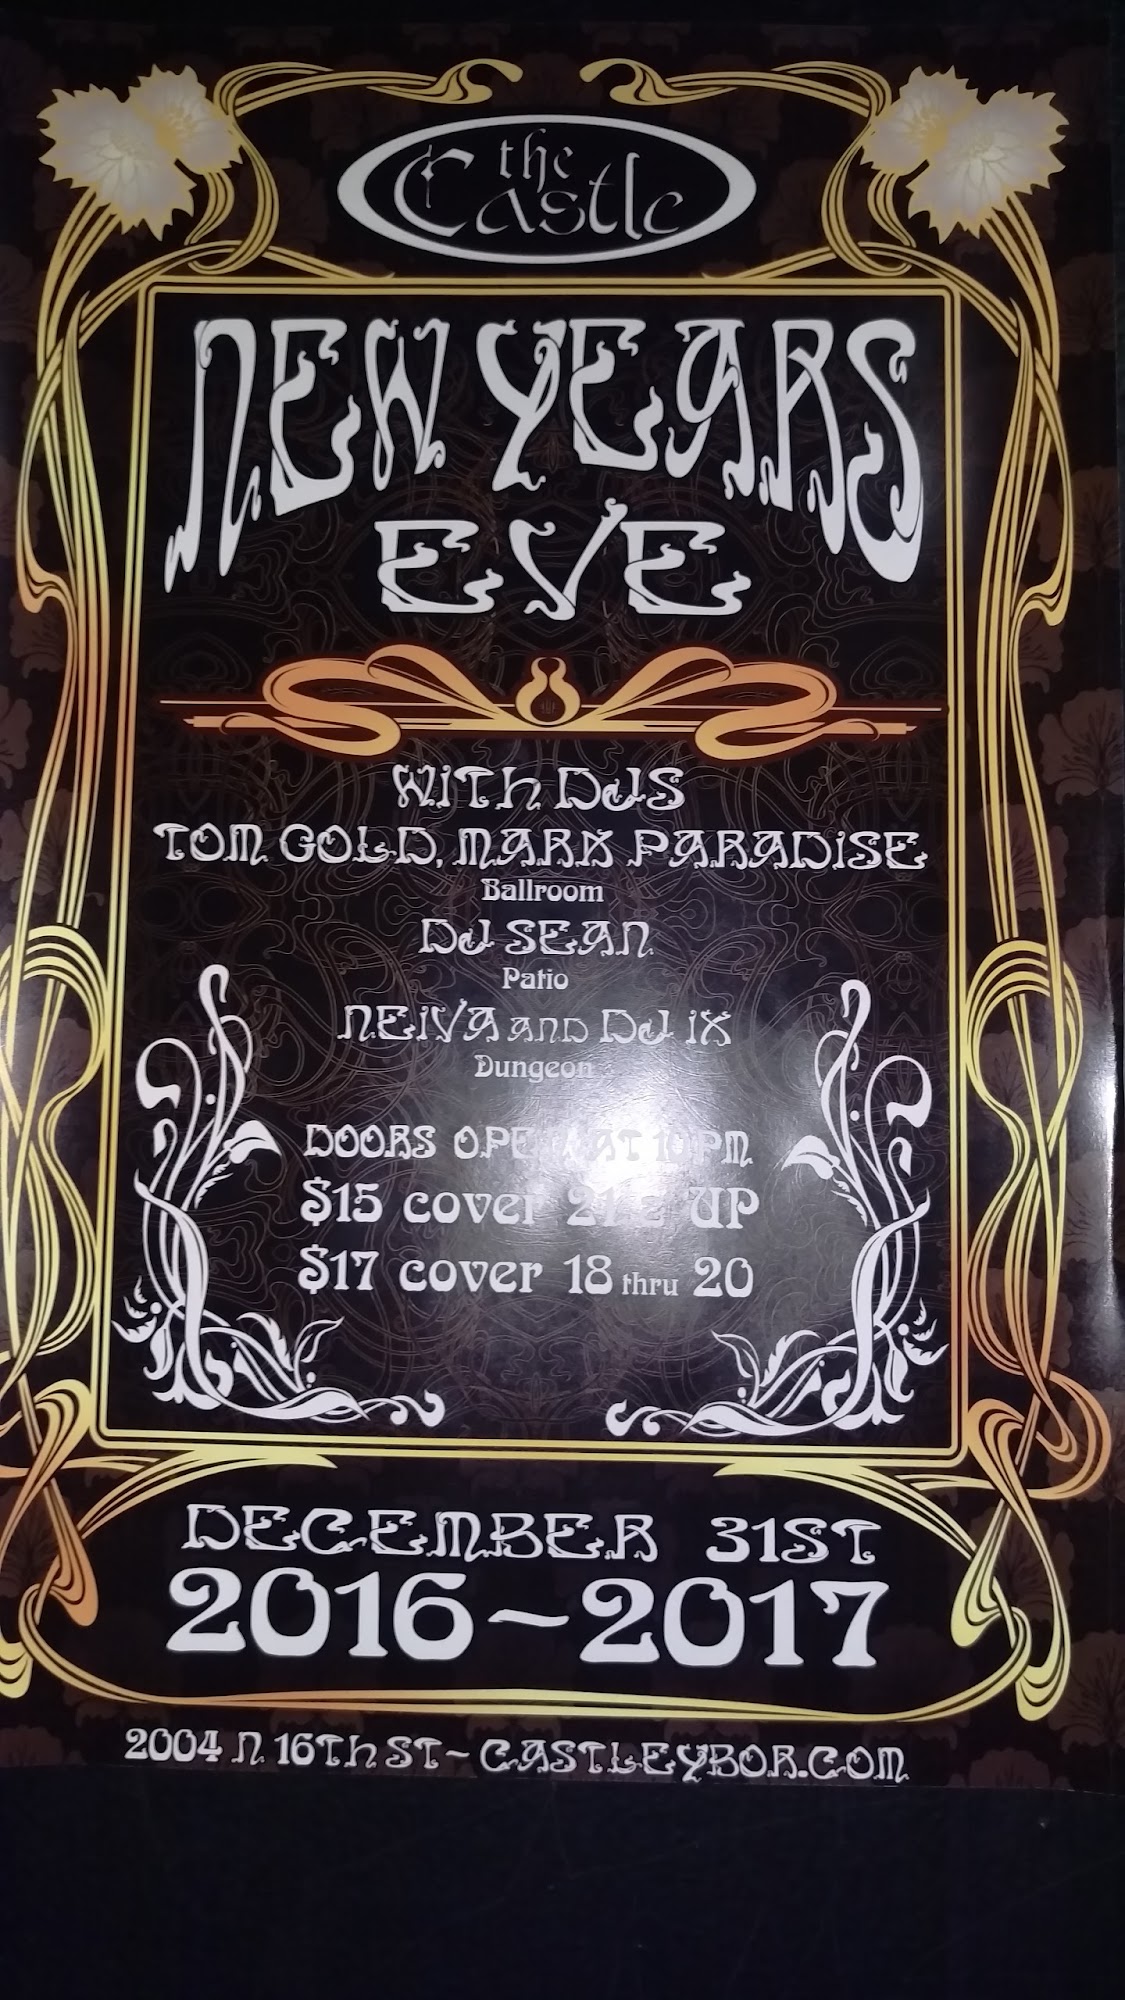 the
Castle
NEW YEARS
EVE
WITH DJS
TOM GOLD, MARK PARADISE
Ballroom
DJ SEAN
Patio
NEIVA AND DJ IX
Dungeon
DOORS OPEN AT 10PM
$15 cover 21 & UP
$17 cover 18 thru 20
DECEMBER 31ST
2016~2017
2004 N 16TH ST~CASTLEYBOR.COM